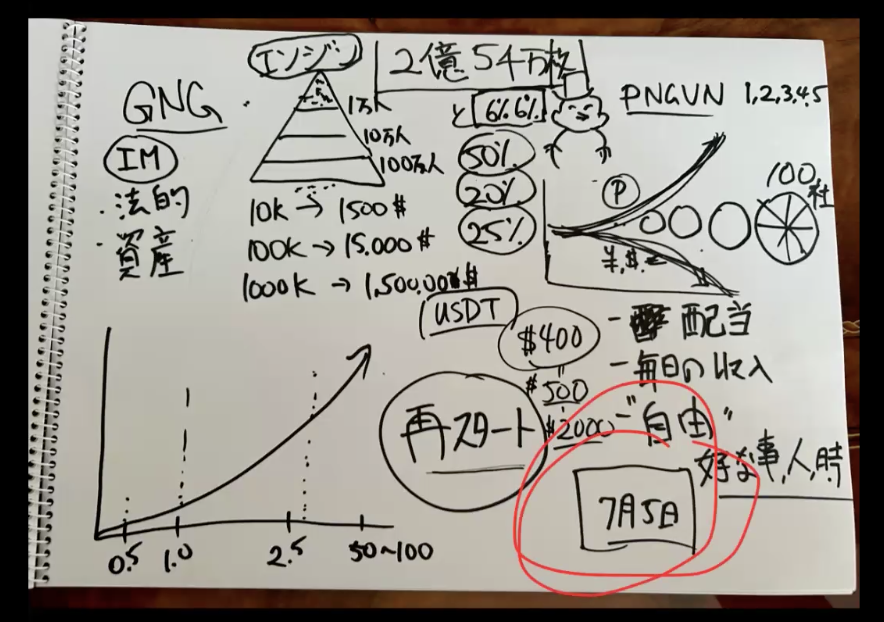 エンジン
2億54万枚
GNG
IM
・法的
・資産
1万人
10万人
100万人
10K → 1500 $
100K → 15.000 $
1000K → 1,500,00
と 6% 6%
50%
20%
25%
PNGUN 1,2,3,4,5
P
100社
¥,$,
USDT
$400
$500
$2000
- 配当
- 毎日の収入
- "自由"
好な事,人,時
再スタート
7月5日
0.5 1.0 2.5 50~100